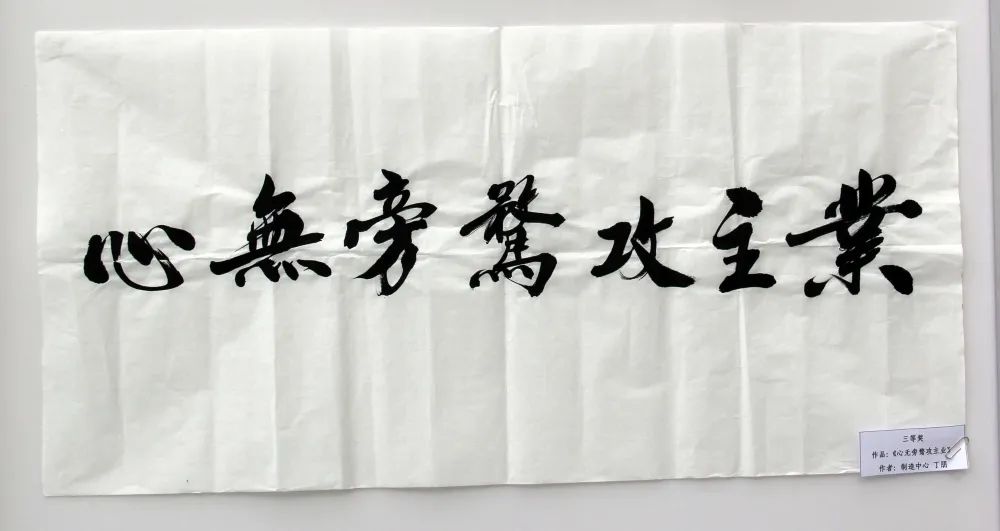 心無旁騖攻主業
三等奖
作品：《心无旁骛攻主业》
作者：制造中心 丁朋